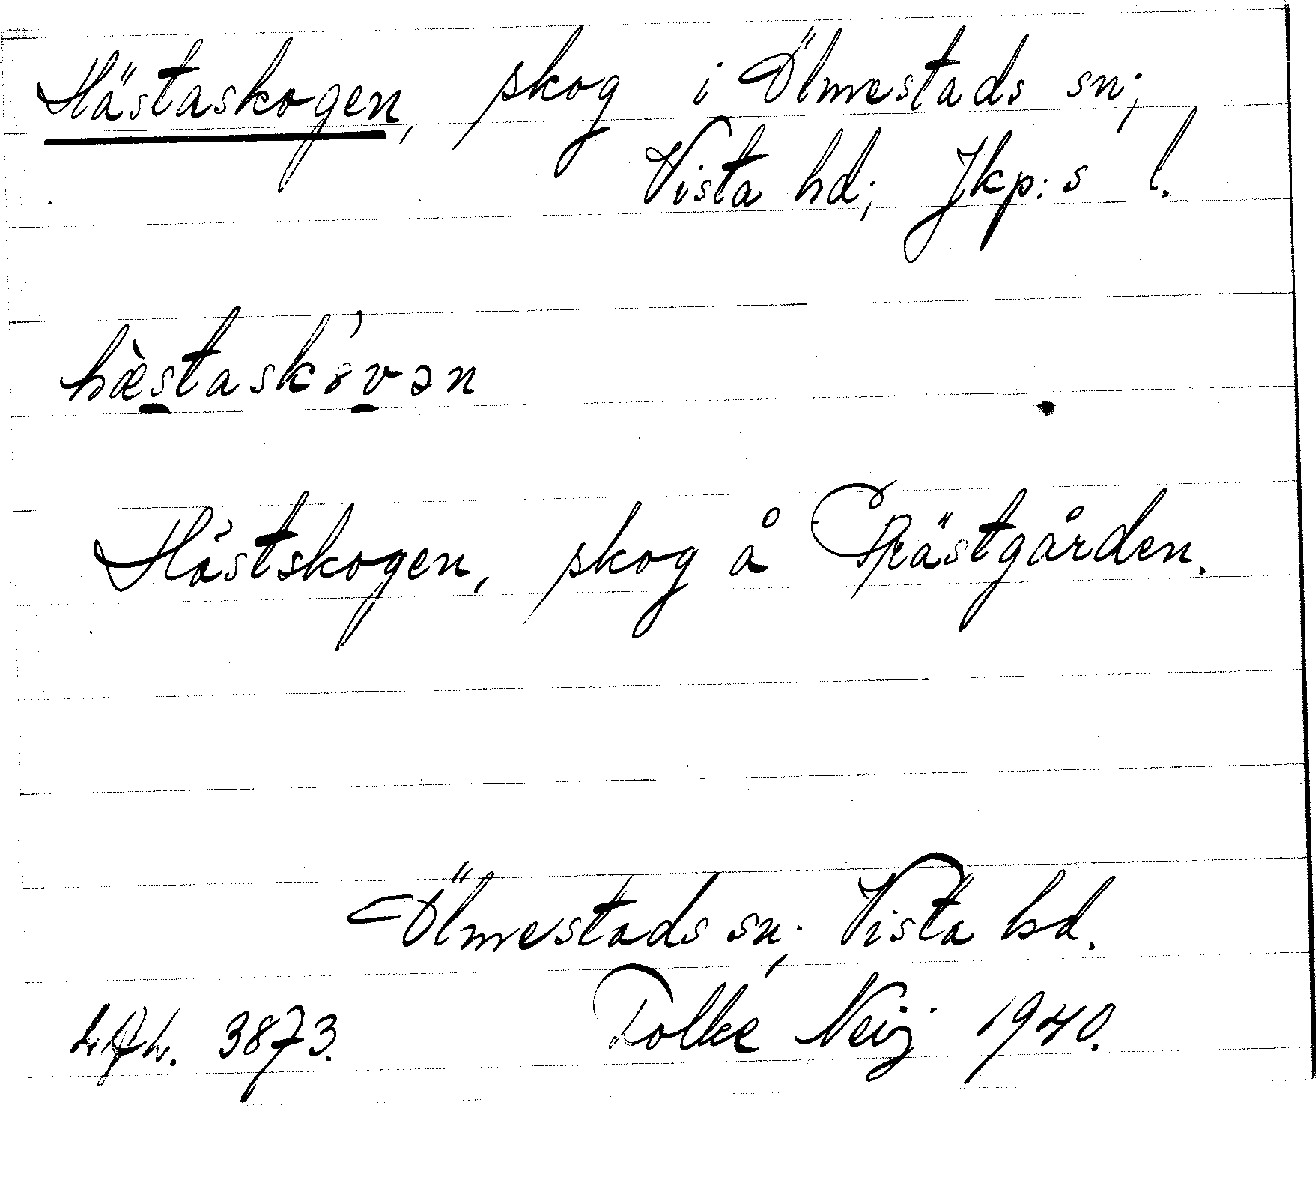 Hästaskogen, skog i Ölmestads sn;
Vista hd; Jkp:s l.
hæ̀staskóvən
Hästskogen, skog å Prästgården.
Ölmestads sn; Vista hd.
3873. Folke Neij 1940.